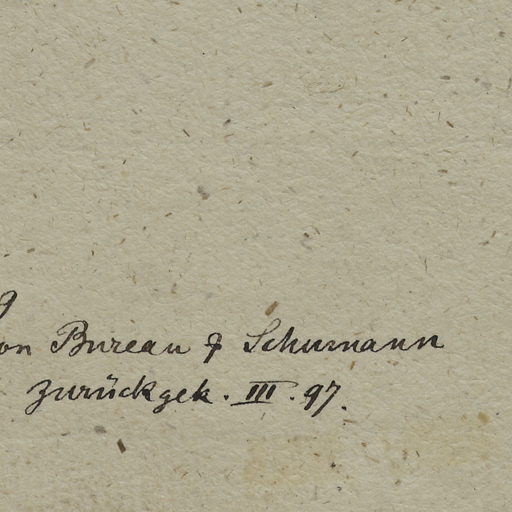 on Bureau & Schumann
zurückgek. III. 97.